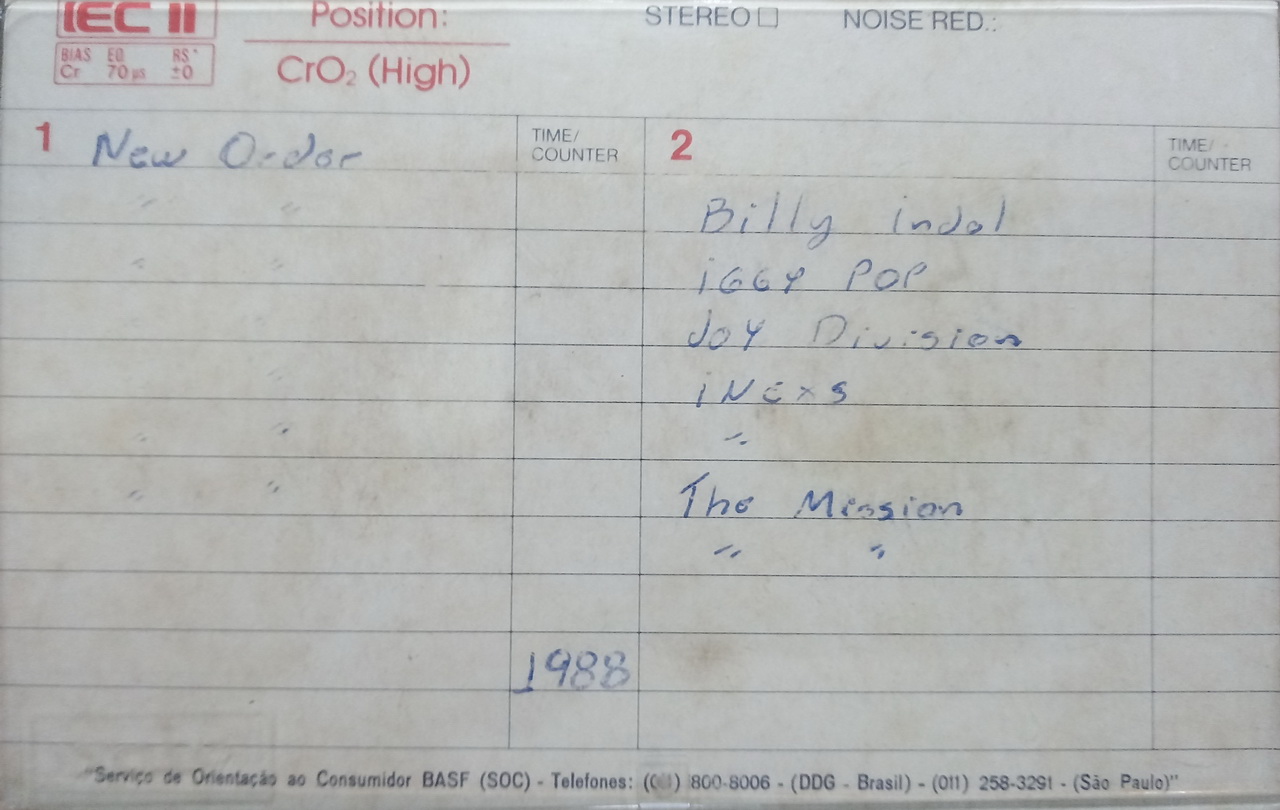 IEC II
Position:
STEREO NOISE RED.:
BIAS EQ RS*
Cr 70 µs ±0
CrO₂ (High)
1 New Order
TIME/
COUNTER
2
TIME/
COUNTER
" "
" "
"
" "
" "
Billy indol
iGGY POP
JOY Division
iNExs
"
The Mission
" "
1988
"Serviço de Orientação ao Consumidor BASF (SOC) - Telefones: 800-8006 - (DDG - Brasil) - (011) 258-3291 - (São Paulo)"